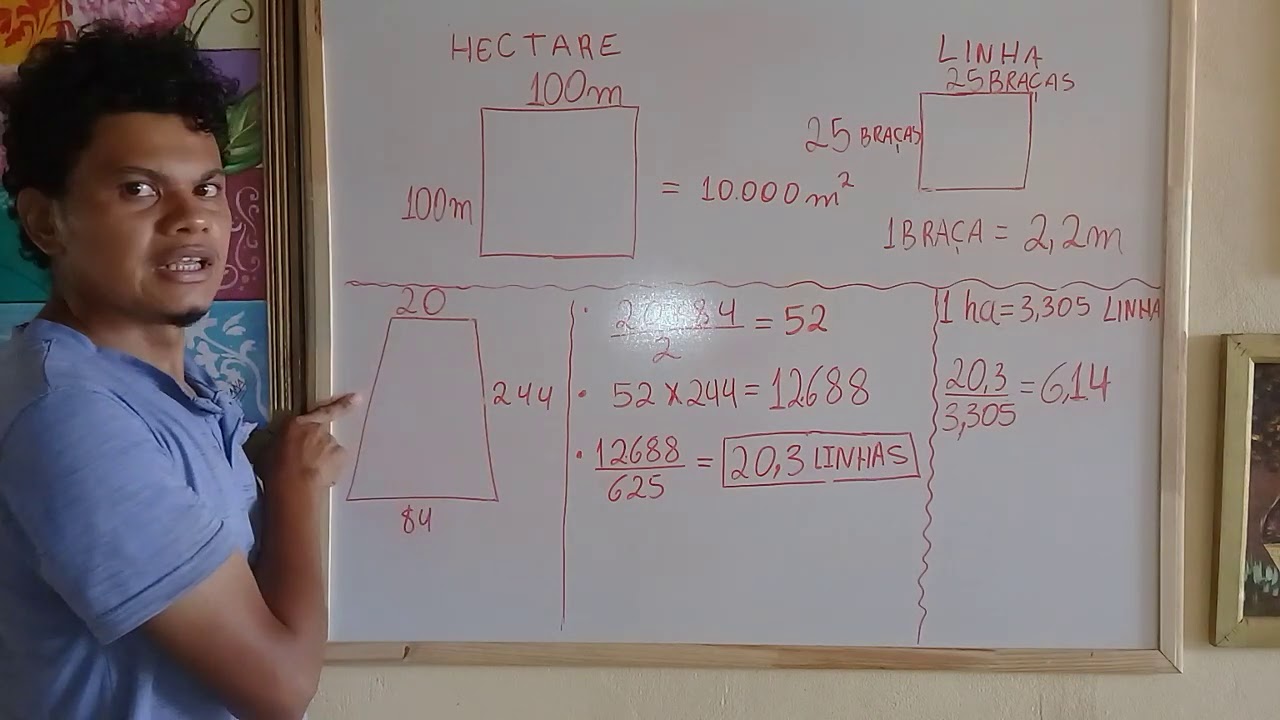 HECTARE
100m
100m
= 10.000 m²
LINHA
25 BRAÇAS
25 BRAÇAS
1 BRAÇA = 2,2m
20
244
84
· 20+84 = 52
2
· 52 x 244 = 12688
· 12688 = 20,3 LINHAS
625
1 ha = 3,305 LINHA
20,3 = 6,14
3,305